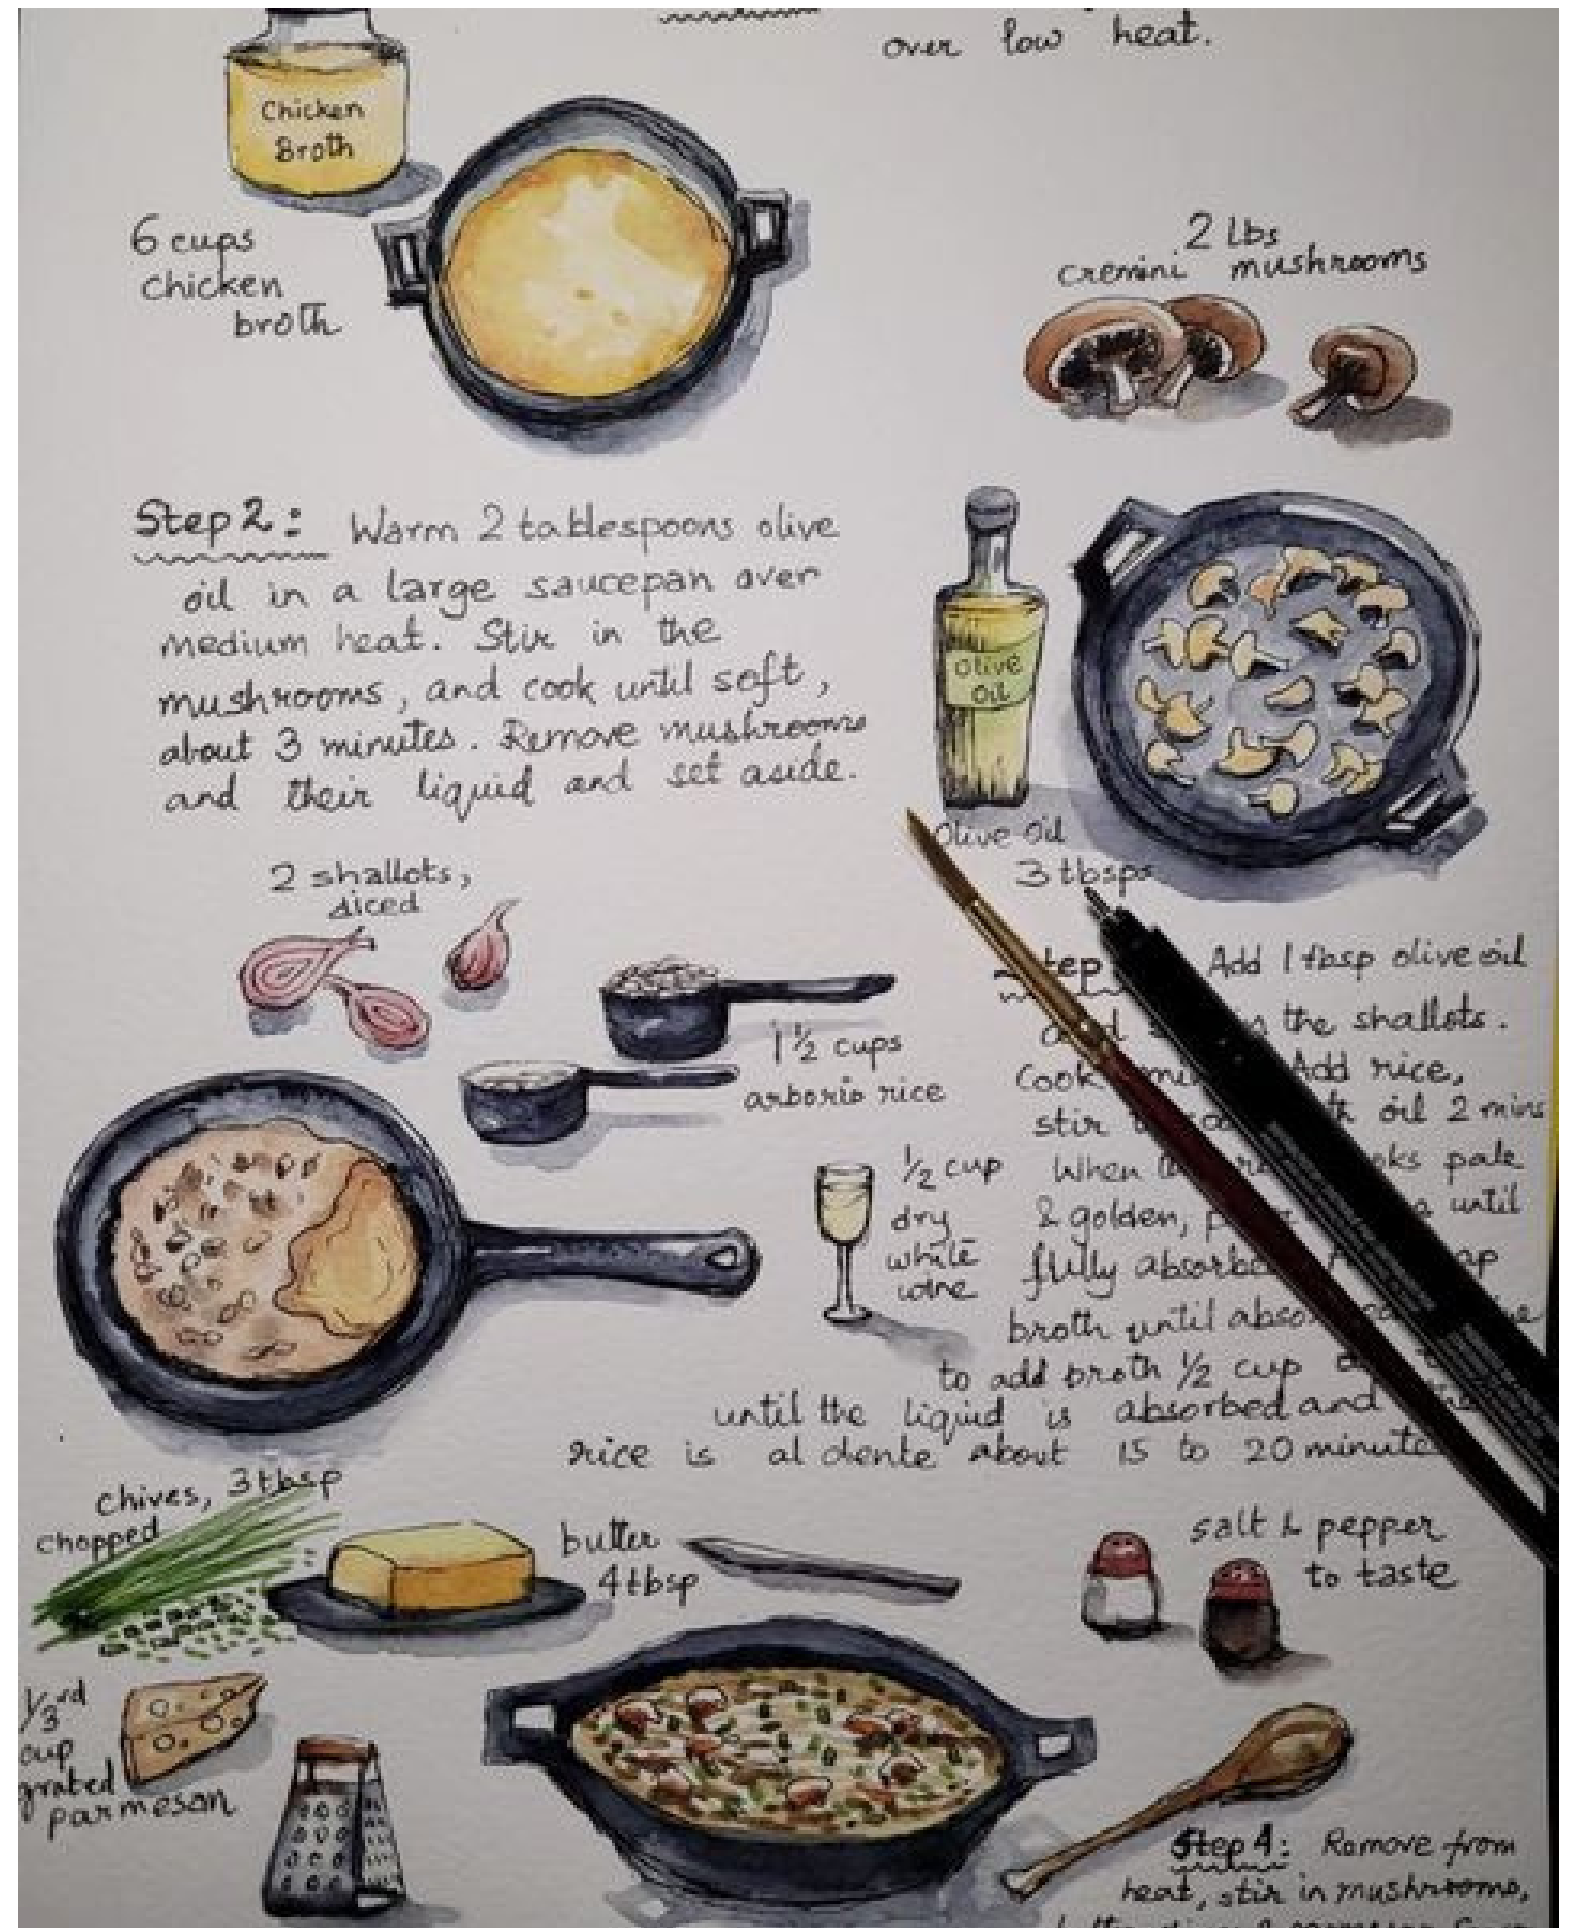 over low heat.
Chicken
Broth
6 cups
chicken
broth
2 Lbs
cremini mushrooms
Step 2: Warm 2 tablespoons olive
oil in a large saucepan over
medium heat. Stir in the
mushrooms, and cook until soft,
about 3 minutes. Remove mushrooms
and their liquid and set aside.
Olive
Oil
Olive Oil
3 tbsps
2 shallots,
diced
1 1/2 cups
arborio rice
1/2 cup
dry
white
wine
Add 1 tbsp olive oil
the shallots.
Cook Add rice,
stir oil 2 mins
When pale
& golden, until
fully
broth until
to add broth 1/2 cup
until the liquid is absorbed and
rice is al dente about 15 to 20
chives, 3 tbsp
chopped
butter
4 tbsp
salt & pepper
to taste
1/3rd
cup
grated
parmesan
Step 4: Remove from
heat, stir in mushrooms,